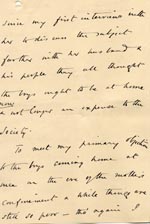 since my first interview with
her to discuss the subject
further with her husband &
his people they all thought
the boys ought to be at home
now
& not longer an expense to the
Society.
To meet my primary objection
to the boys coming home at
once on the eve of the mother's
confinement & while things are
still so poor - tho' again I